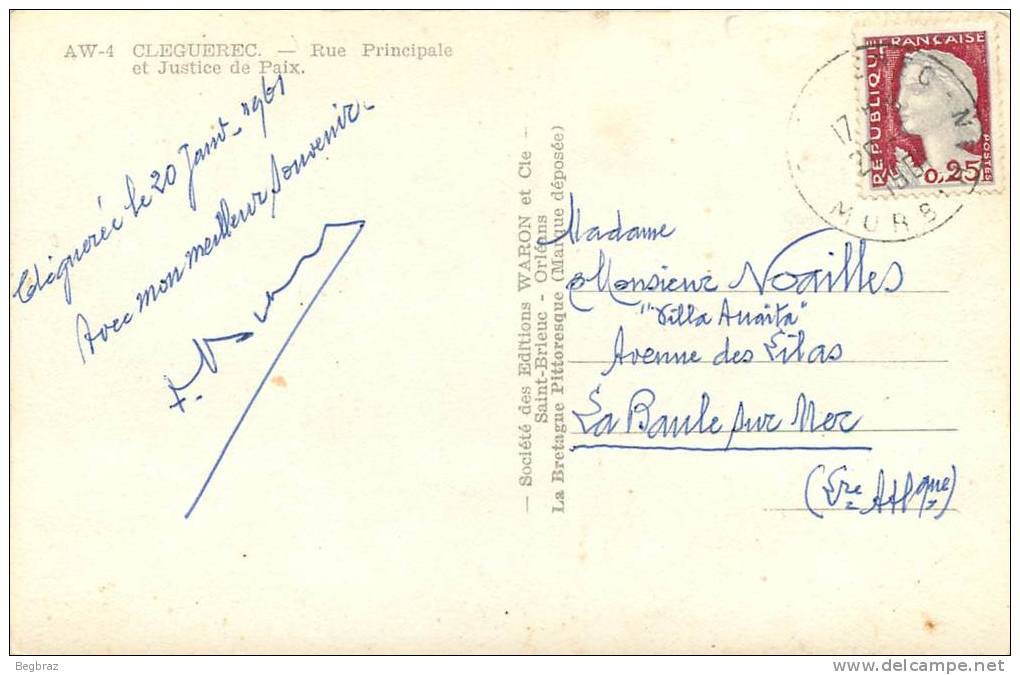 AW-4 CLEGUEREC. — Rue Principale
et Justice de Paix.
Cléguerec le 20 Janv- 1961
Avec mon meilleur souvenir-
— Société des Editions WARON et Cie —
Saint-Brieuc - Orléans
La Bretagne Pittoresque (Marque déposée)
REPUBLIQUE FRANÇAISE
0,25
POSTES
MURS
Madame
Monsieur Noailles
"Villa Anaita"
Avenue des Lilas
La Baule sur Mer
(Lre Atlque)
Begbraz
www.delcampe.net